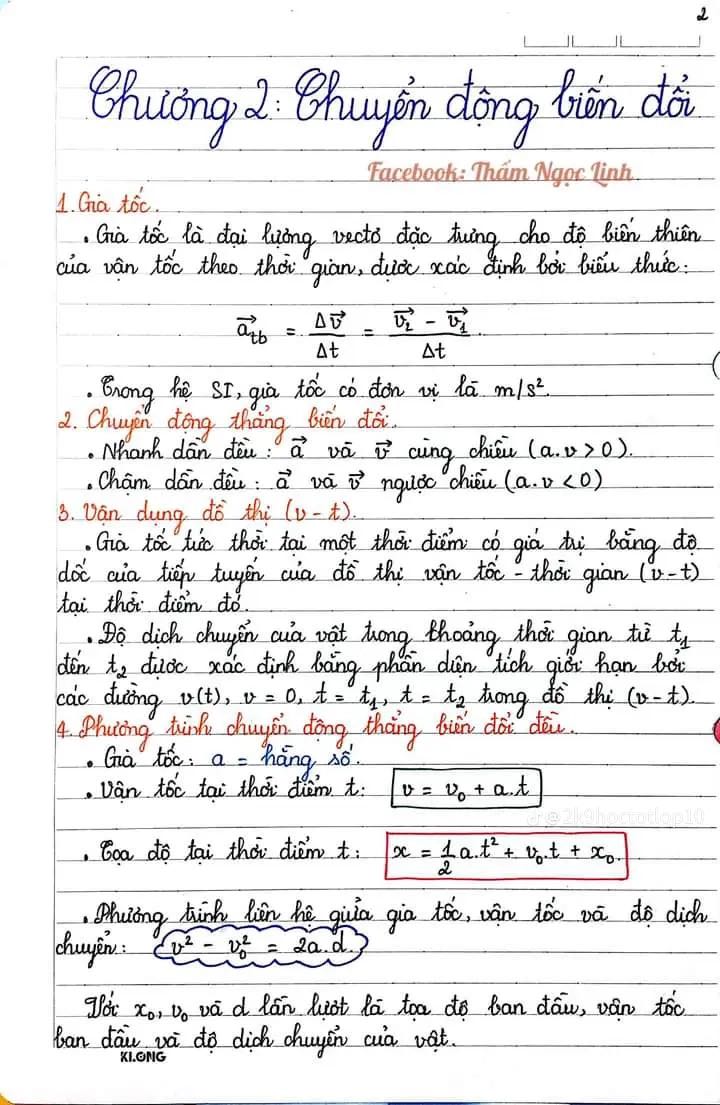 2
Chương 2: Chuyển động biến đổi
Facebook: Thẩm Ngọc Linh
1. Gia tốc.
• Gia tốc là đại lượng vectơ đặc trưng cho độ biến thiên
của vận tốc theo thời gian, được xác định bởi biểu thức:
a⃗_tb = Δv⃗/Δt = (v⃗₂ - v⃗₁)/Δt
• Trong hệ SI, gia tốc có đơn vị là m/s².
2. Chuyển động thẳng biến đổi.
• Nhanh dần đều: a⃗ và v⃗ cùng chiều (a.v > 0).
• Chậm dần đều: a⃗ và v⃗ ngược chiều (a.v < 0)
3. Vận dụng đồ thị (v - t).
• Gia tốc tức thời tại một thời điểm có giá trị bằng độ
dốc của tiếp tuyến của đồ thị vận tốc - thời gian (v-t)
tại thời điểm đó.
• Độ dịch chuyển của vật trong khoảng thời gian từ t₁
đến t₂ được xác định bằng phần diện tích giới hạn bởi
các đường v(t), v = 0, t = t₁, t = t₂ trong đồ thị (v-t).
4. Phương trình chuyển động thẳng biến đổi đều.
• Gia tốc: a = hằng số.
• Vận tốc tại thời điểm t: v = v₀ + a.t
@2k9hoctotlop10
• Tọa độ tại thời điểm t: x = 1/2 a.t² + v₀.t + x₀.
• Phương trình liên hệ giữa gia tốc, vận tốc và độ dịch
chuyển: v² - v₀² = 2a.d.
Với x₀, v₀ và d lần lượt là tọa độ ban đầu, vận tốc
ban đầu và độ dịch chuyển của vật.
KLONG